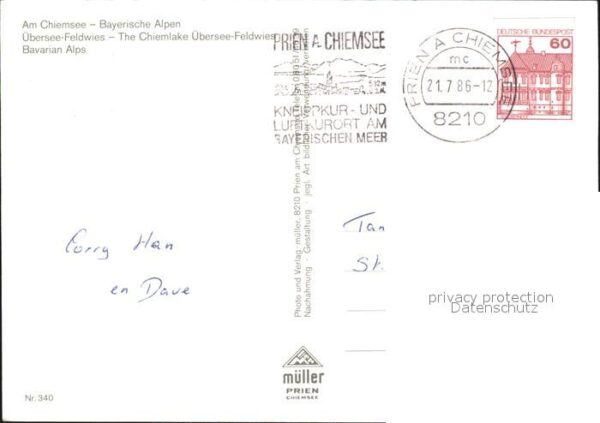 Am Chiemsee – Bayerische Alpen
Übersee-Feldwies – The Chiemlake Übersee-Feldwies
Bavarian Alps
PRIEN A. CHIEMSEE
KNEIPPKUR- UND
LUFTKURORT AM
BAYERISCHEN MEER
PRIEN A CHIEMSEE
mc
21.7.86-12
8210
DEUTSCHE BUNDESPOST
60
Corry Han
en Dave
Tan
St.
privacy protection
Datenschutz
Photo und Verlag müller, 8210 Prien am Chiemsee
Nachahmung - Gestaltung - jegl. Art bildlicher Verwendung verboten
müller
PRIEN
CHIEMSEE
Nr. 340